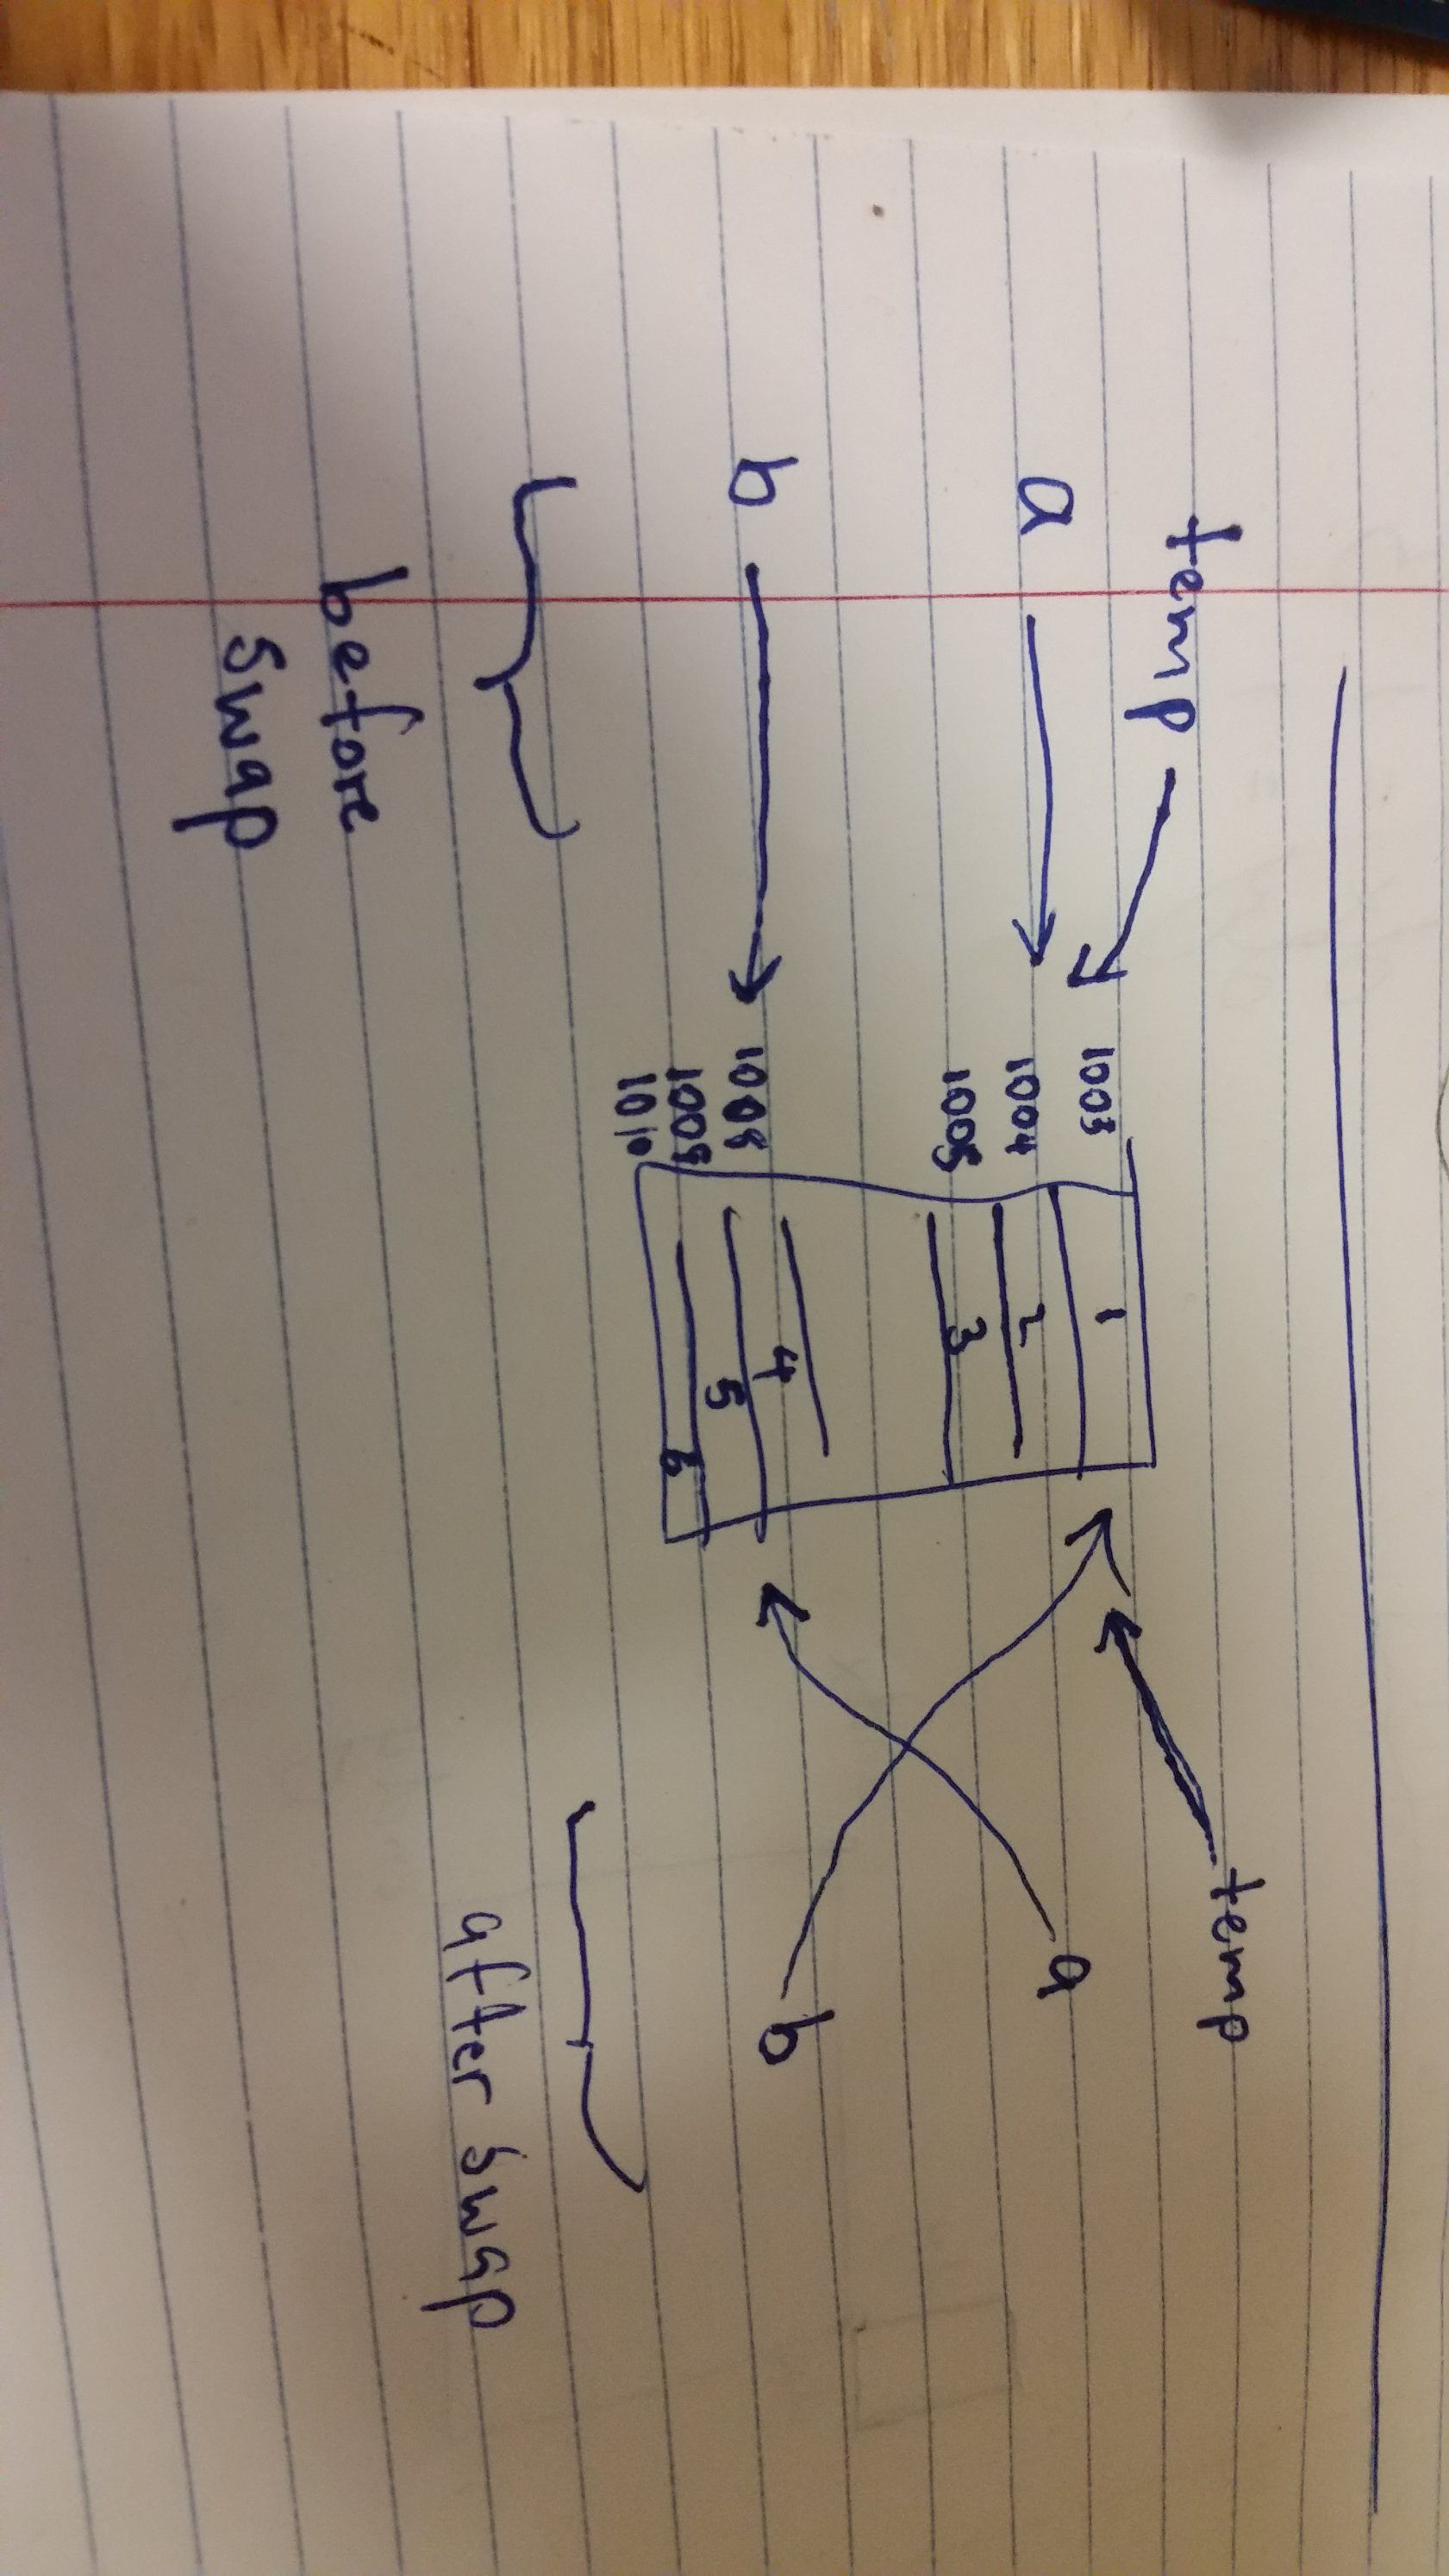 temp
a
b
before
swap
1003
1004
1005
1008
1009
1010
1
2
3
4
5
6
temp
a
b
after swap